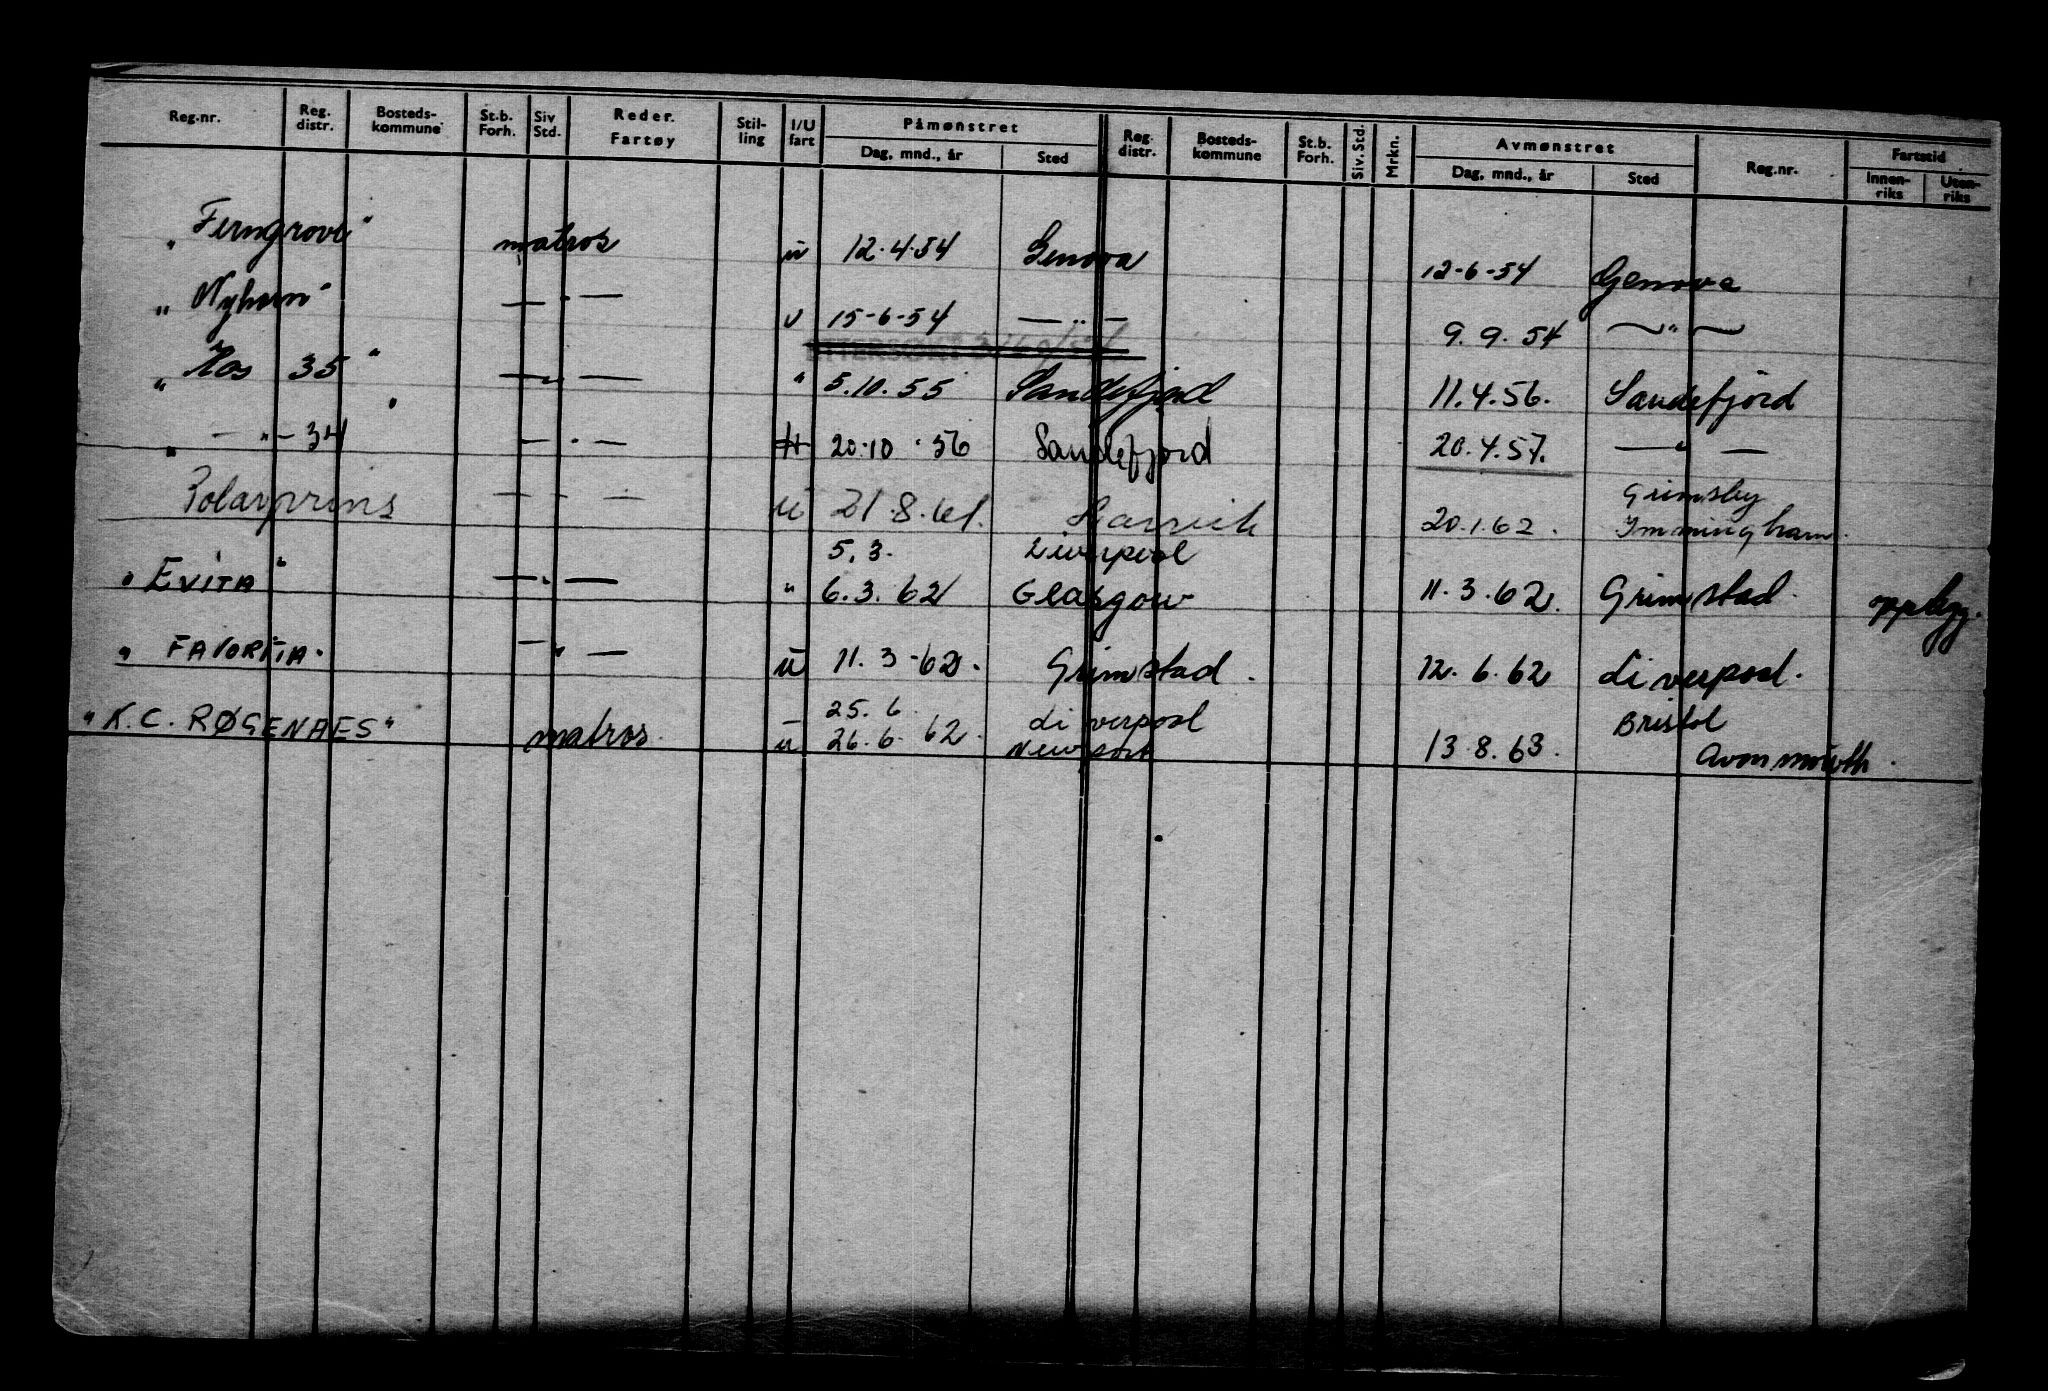 Reg.nr. Reg. distr. Bosteds- kommune St.b. Forh. Siv Std. Reder. Fartøy Stil- ling I/U fart Påmønstret Dag, mnd., år Sted Reg. distr. Bosteds- kommune St.b. Forh. Siv. Std. Mrkn. Avmønstret Dag, mnd., år Sted Reg.nr. Fartstid Innen- riks Uten- riks
"Ferngrove" matros ū 12.4.54 Genova 12-6-54 Genova
"Nyhorn" — " — u 15-6-54 — " — 9.9.54 — " —
"Kos 35" — " — " 5.10.55 Sandefjord 11.4.56. Sandefjord
" — " — 34" — " — 20.10.56 Sandefjord 20.4.57. — " —
Polarprins — " — ū 21.8.61. Harwich 20.1.62. Grimsby Immingham.
5.3. Liverpool
"EVITA" — " — " 6.3.62 Glasgow 11.3.62. Grimstad. opplegg.
"FAVORITA. — " — ū 11.3-62. Grimstad. 12.6.62 Liverpool.
25.6 Liverpool Bristol
"K.C. RØGENAES" matros. ū 26.6.62. Newport 13.8.63. Avonmouth.